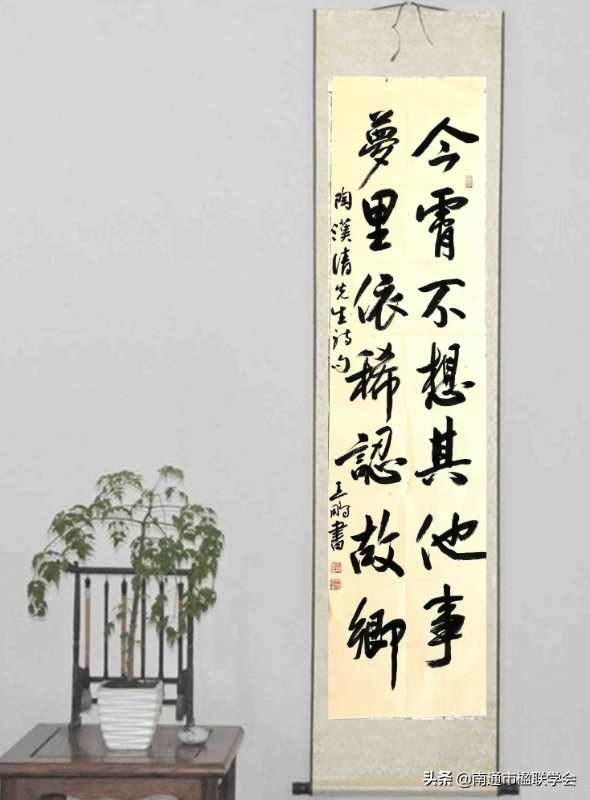 今霄不想其他事
夢里依稀認故鄉
陶漢清先生詩句
王鵬書
头条 @南通市楹联学会